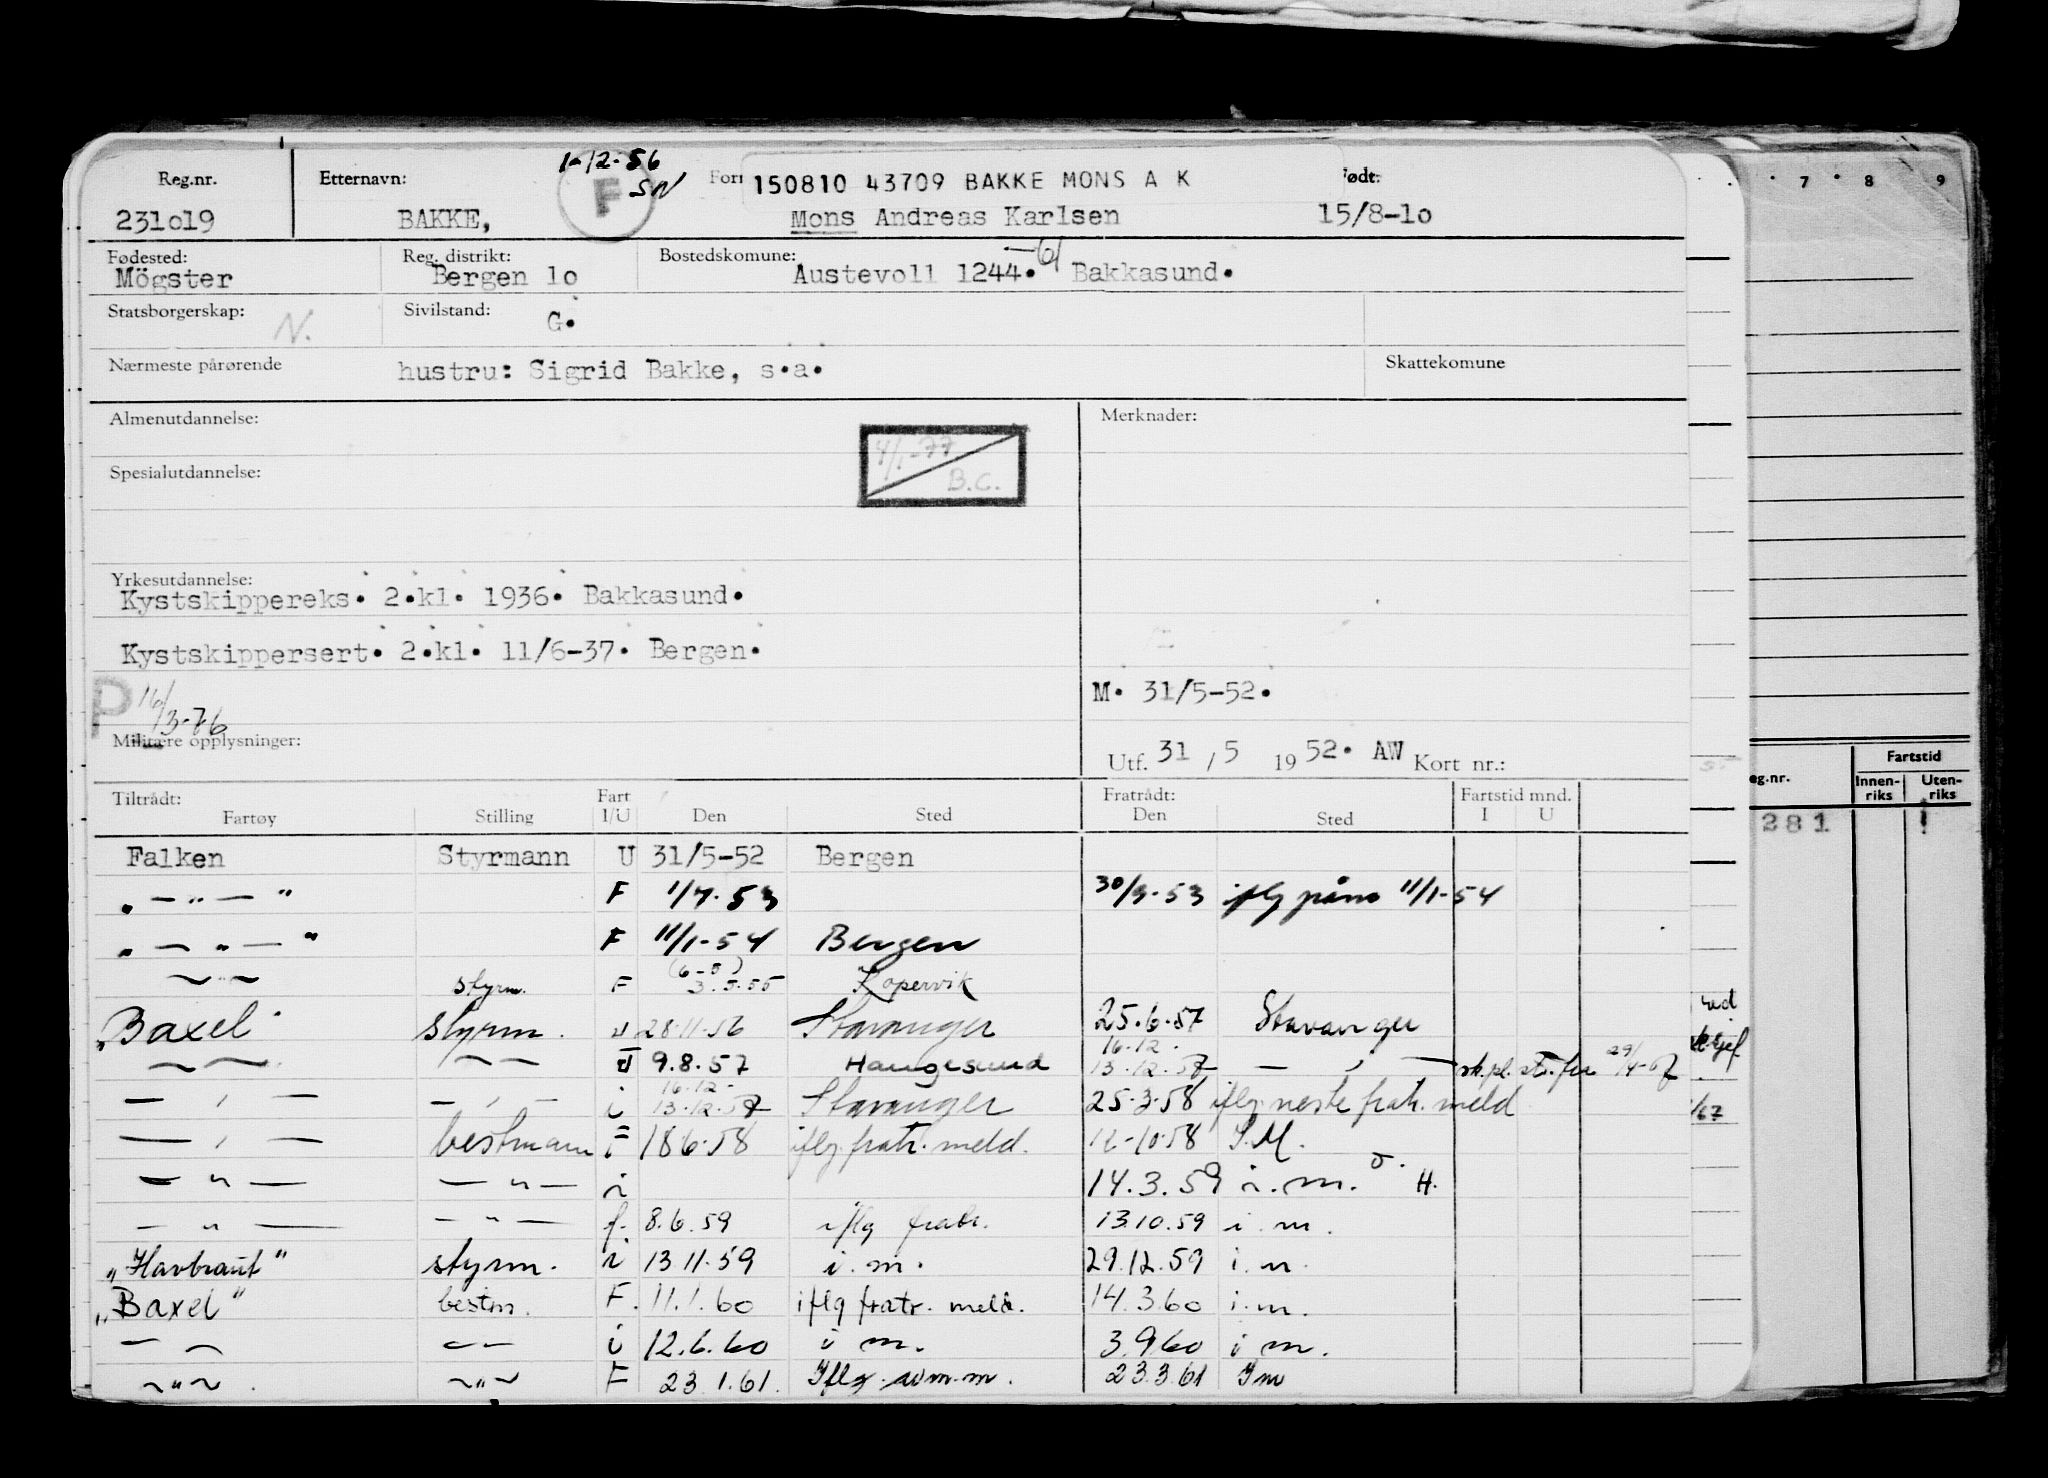 1-12-56
Reg.nr. Etternavn: F SN 150810 43709 BAKKE MONS A K Født:
231o19 BAKKE, Mons Andreas Karlsen 15/8-1o
Fødested: Reg. distrikt: Bostedskomune: -61
Mögster Bergen 1o Austevoll 1244. Bakkasund.
Statsborgerskap: N. Sivilstand: G.
Nærmeste pårørende hustru: Sigrid Bakke, s.a. Skattekomune
Almenutdannelse: Merknader:
4/1-77
B.C.
Spesialutdannelse:
Yrkesutdannelse:
Kystskippereks. 2.kl. 1936. Bakkasund.
Kystskippersert. 2.kl. 11/6-37. Bergen.
P 16/3-76 M. 31/5-52.
Militære opplysninger: Utf. 31/5 1952. AW Kort nr.:
Tiltrådt: Fart Fratrådt: Fartstid mnd.
Fartøy Stilling I/U Den Sted Den Sted I U
Falken Styrmann U 31/5-52 Bergen
„ — „ — " F 1/7.53 30/9-53 iflg påm 11/1-54
„ — „ — " F 11/1-54 Bergen
— „ — styrm. F (6-5) 3.5.55 Kopervik
„Baxel" styrm. U 28.11.56 Stavanger 25.6.57 Stavanger
— — — — U 9.8.57 Haugesund 16.12. 13.12.57 — , — sk.pl. st. fra 29/4-67
— , — — , — i 16.12- 13.12.57 Stavanger 25.3.58 iflg neste fratr. meld
— , — bestmann i 18.6.58 iflg. fratr. meld. 12-10.58 I.M.
— " — — " — i 14.3.59 i.m. H.
— " — — " — f. 8.6.59 iflg fratr. 13.10.59 i.m.
„Havbraut" styrm. i 13.11.59 i.m. 29.12.59 i.m.
„Baxel" bestm. F. 11.1.60 iflg fratr. meld. 14.3.60 i.m.
— — — — i 12.6.60 i m. 3.9.60 i m.
— " — — " — F 23.1.61. Iflg. avm.m. 23.3.61 Im
7 8 9
eg.nr. Fartstid
Innen-riks Uten-riks
281